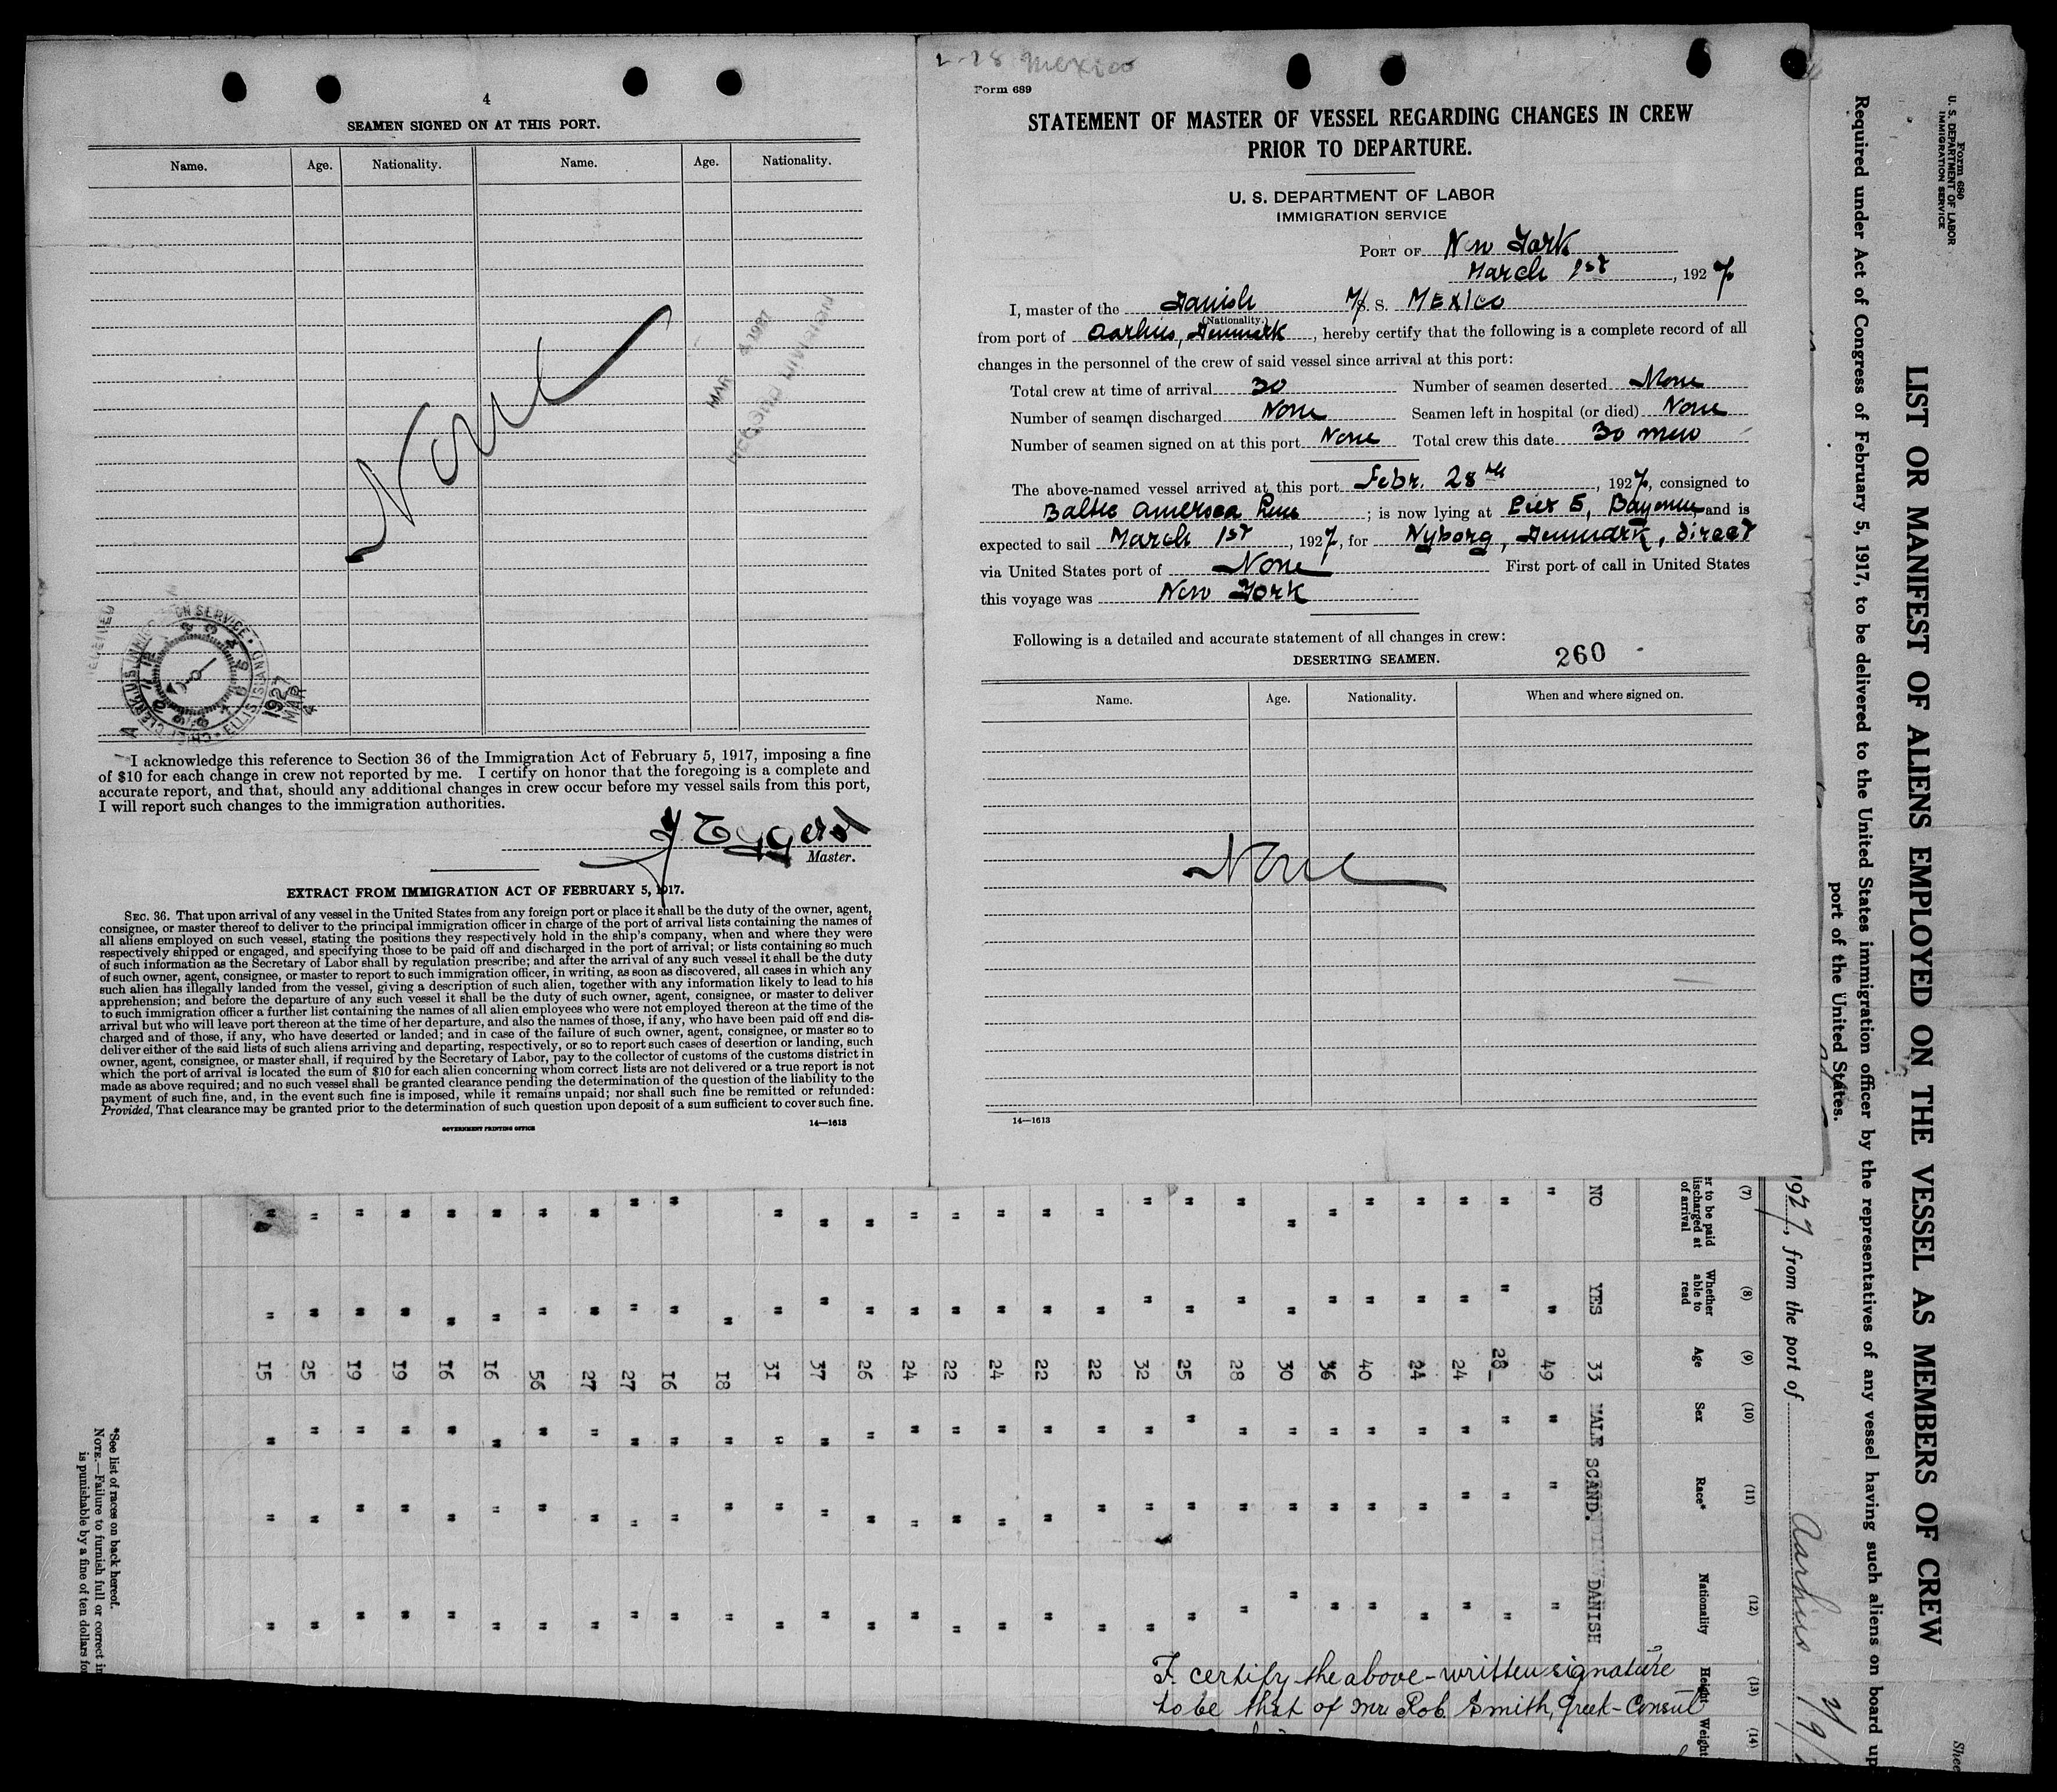 4
SEAMEN SIGNED ON AT THIS PORT.
Name. Age. Nationality. Name. Age. Nationality.
None
MAR 4 1927
CHIEF CLERK U.S. IMMIGRATION SERVICE ELLIS ISLAND
1927
MAR
4
I acknowledge this reference to Section 36 of the Immigration Act of February 5, 1917, imposing a fine
of $10 for each change in crew not reported by me. I certify on honor that the foregoing is a complete and
accurate report, and that, should any additional changes in crew occur before my vessel sails from this port,
I will report such changes to the immigration authorities.
Eggers
Master.
EXTRACT FROM IMMIGRATION ACT OF FEBRUARY 5, 1917.
SEC. 36. That upon arrival of any vessel in the United States from any foreign port or place it shall be the duty of the owner, agent,
consignee, or master thereof to deliver to the principal immigration officer in charge of the port of arrival lists containing the names of
all aliens employed on such vessel, stating the positions they respectively hold in the ship's company, when and where they were
respectively shipped or engaged, and specifying those to be paid off and discharged in the port of arrival; or lists containing so much
of such information as the Secretary of Labor shall by regulation prescribe; and after the arrival of any such vessel it shall be the duty
of such owner, agent, consignee, or master to report to such immigration officer, in writing, as soon as discovered, all cases in which any
such alien has illegally landed from the vessel, giving a description of such alien, together with any information likely to lead to his
apprehension; and before the departure of any such vessel it shall be the duty of such owner, agent, consignee, or master to deliver
to such immigration officer a further list containing the names of all alien employees who were not employed thereon at the time of the
arrival but who will leave port thereon at the time of her departure, and also the names of those, if any, who have been paid off and dis-
charged and of those, if any, who have deserted or landed; and in case of the failure of such owner, agent, consignee, or master so to
deliver either of the said lists of such aliens arriving and departing, respectively, or so to report such cases of desertion or landing, such
owner, agent, consignee, or master shall, if required by the Secretary of Labor, pay to the collector of customs of the customs district in
which the port of arrival is located the sum of $10 for each alien concerning whom correct lists are not delivered or a true report is not
made as above required; and no such vessel shall be granted clearance pending the determination of the question of the liability to the
payment of such fine, and, in the event such fine is imposed, while it remains unpaid; nor shall such fine be remitted or refunded:
Provided, That clearance may be granted prior to the determination of such question upon deposit of a sum sufficient to cover such fine.
GOVERNMENT PRINTING OFFICE 14—1613
2-28 Mexico
Form 689
STATEMENT OF MASTER OF VESSEL REGARDING CHANGES IN CREW
PRIOR TO DEPARTURE.
U. S. DEPARTMENT OF LABOR
IMMIGRATION SERVICE
PORT OF New York
March 1st, 1927
I, master of the Danish M/S. S. MEXICO
(Nationality.)
from port of Aarhus, Denmark, hereby certify that the following is a complete record of all
changes in the personnel of the crew of said vessel since arrival at this port:
Total crew at time of arrival 30 Number of seamen deserted None
Number of seamen discharged None Seamen left in hospital (or died) None
Number of seamen signed on at this port None Total crew this date 30 men
The above-named vessel arrived at this port Febr. 28th, 1927, consigned to
Baltic America Line; is now lying at Pier 5, Bayonne and is
expected to sail March 1st, 1927, for Nyborg, Denmark, direct
via United States port of None First port of call in United States
this voyage was New York
Following is a detailed and accurate statement of all changes in crew:
DESERTING SEAMEN. 260
Name. Age. Nationality. When and where signed on.
None
14—1613
Form 680
U. S. DEPARTMENT OF LABOR
IMMIGRATION SERVICE
LIST OR MANIFEST OF ALIENS EMPLOYED ON THE VESSEL AS MEMBERS OF CREW
Required under Act of Congress of February 5, 1917, to be delivered to the United States immigration officer by the representatives of any vessel having such aliens on board up
port of the United States.
1927, from the port of Aarhus
(7) (8) (9) (10) (11) (12) (13) (14)
er to be paid
discharged at
of arrival
Whether
able to
read
Age Sex Race* Nationality Height Weight
NO YES 33 MALE SCAND. DANISH
" " 49 " " "
" " 28 " " "
" " 24 " " "
" " 24 " " "
" " 40 " " "
" " 36 " " "
" " 30 " " "
" " 28 " " "
" " 25 " " "
" " 32 " " "
" " 22 " " "
" " 22 " " "
" " 24 " " "
" " 22 " " "
" " 24 " "
" " 26 " " "
" " 37 " " "
" " 31 " " "
" 18 " " "
" " 16 " " "
" " 27 " " "
" " 27 " " "
" " 56 " " "
" " 16 " " "
" " 16 " " "
" " 19 " " "
" " 19 " " "
" " 25 " " "
" " 15 " " "
I certify the above-written signature
to be that of Mr. Rob. Smith, Greek-Consul
*See list of races on back hereof.
NOTE.—Failure to furnish full or correct in
is punishable by a fine of ten dollars for